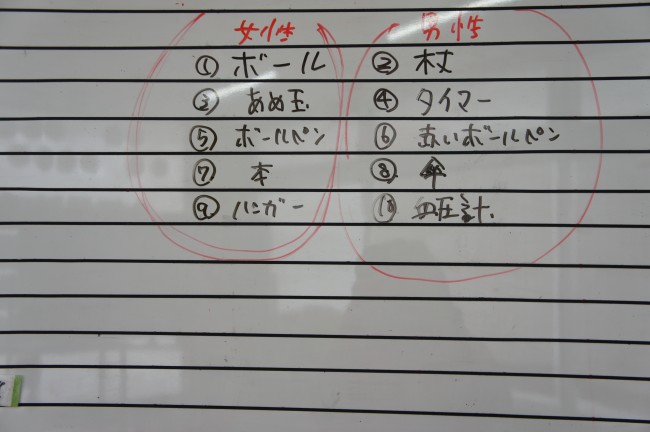 女性 男性
① ボール ② 杖
③ あめ玉 ④ タイマー
⑤ ボールペン ⑥ 赤いボールペン
⑦ 本 ⑧
⑨ ハンガー ⑩ 血圧計